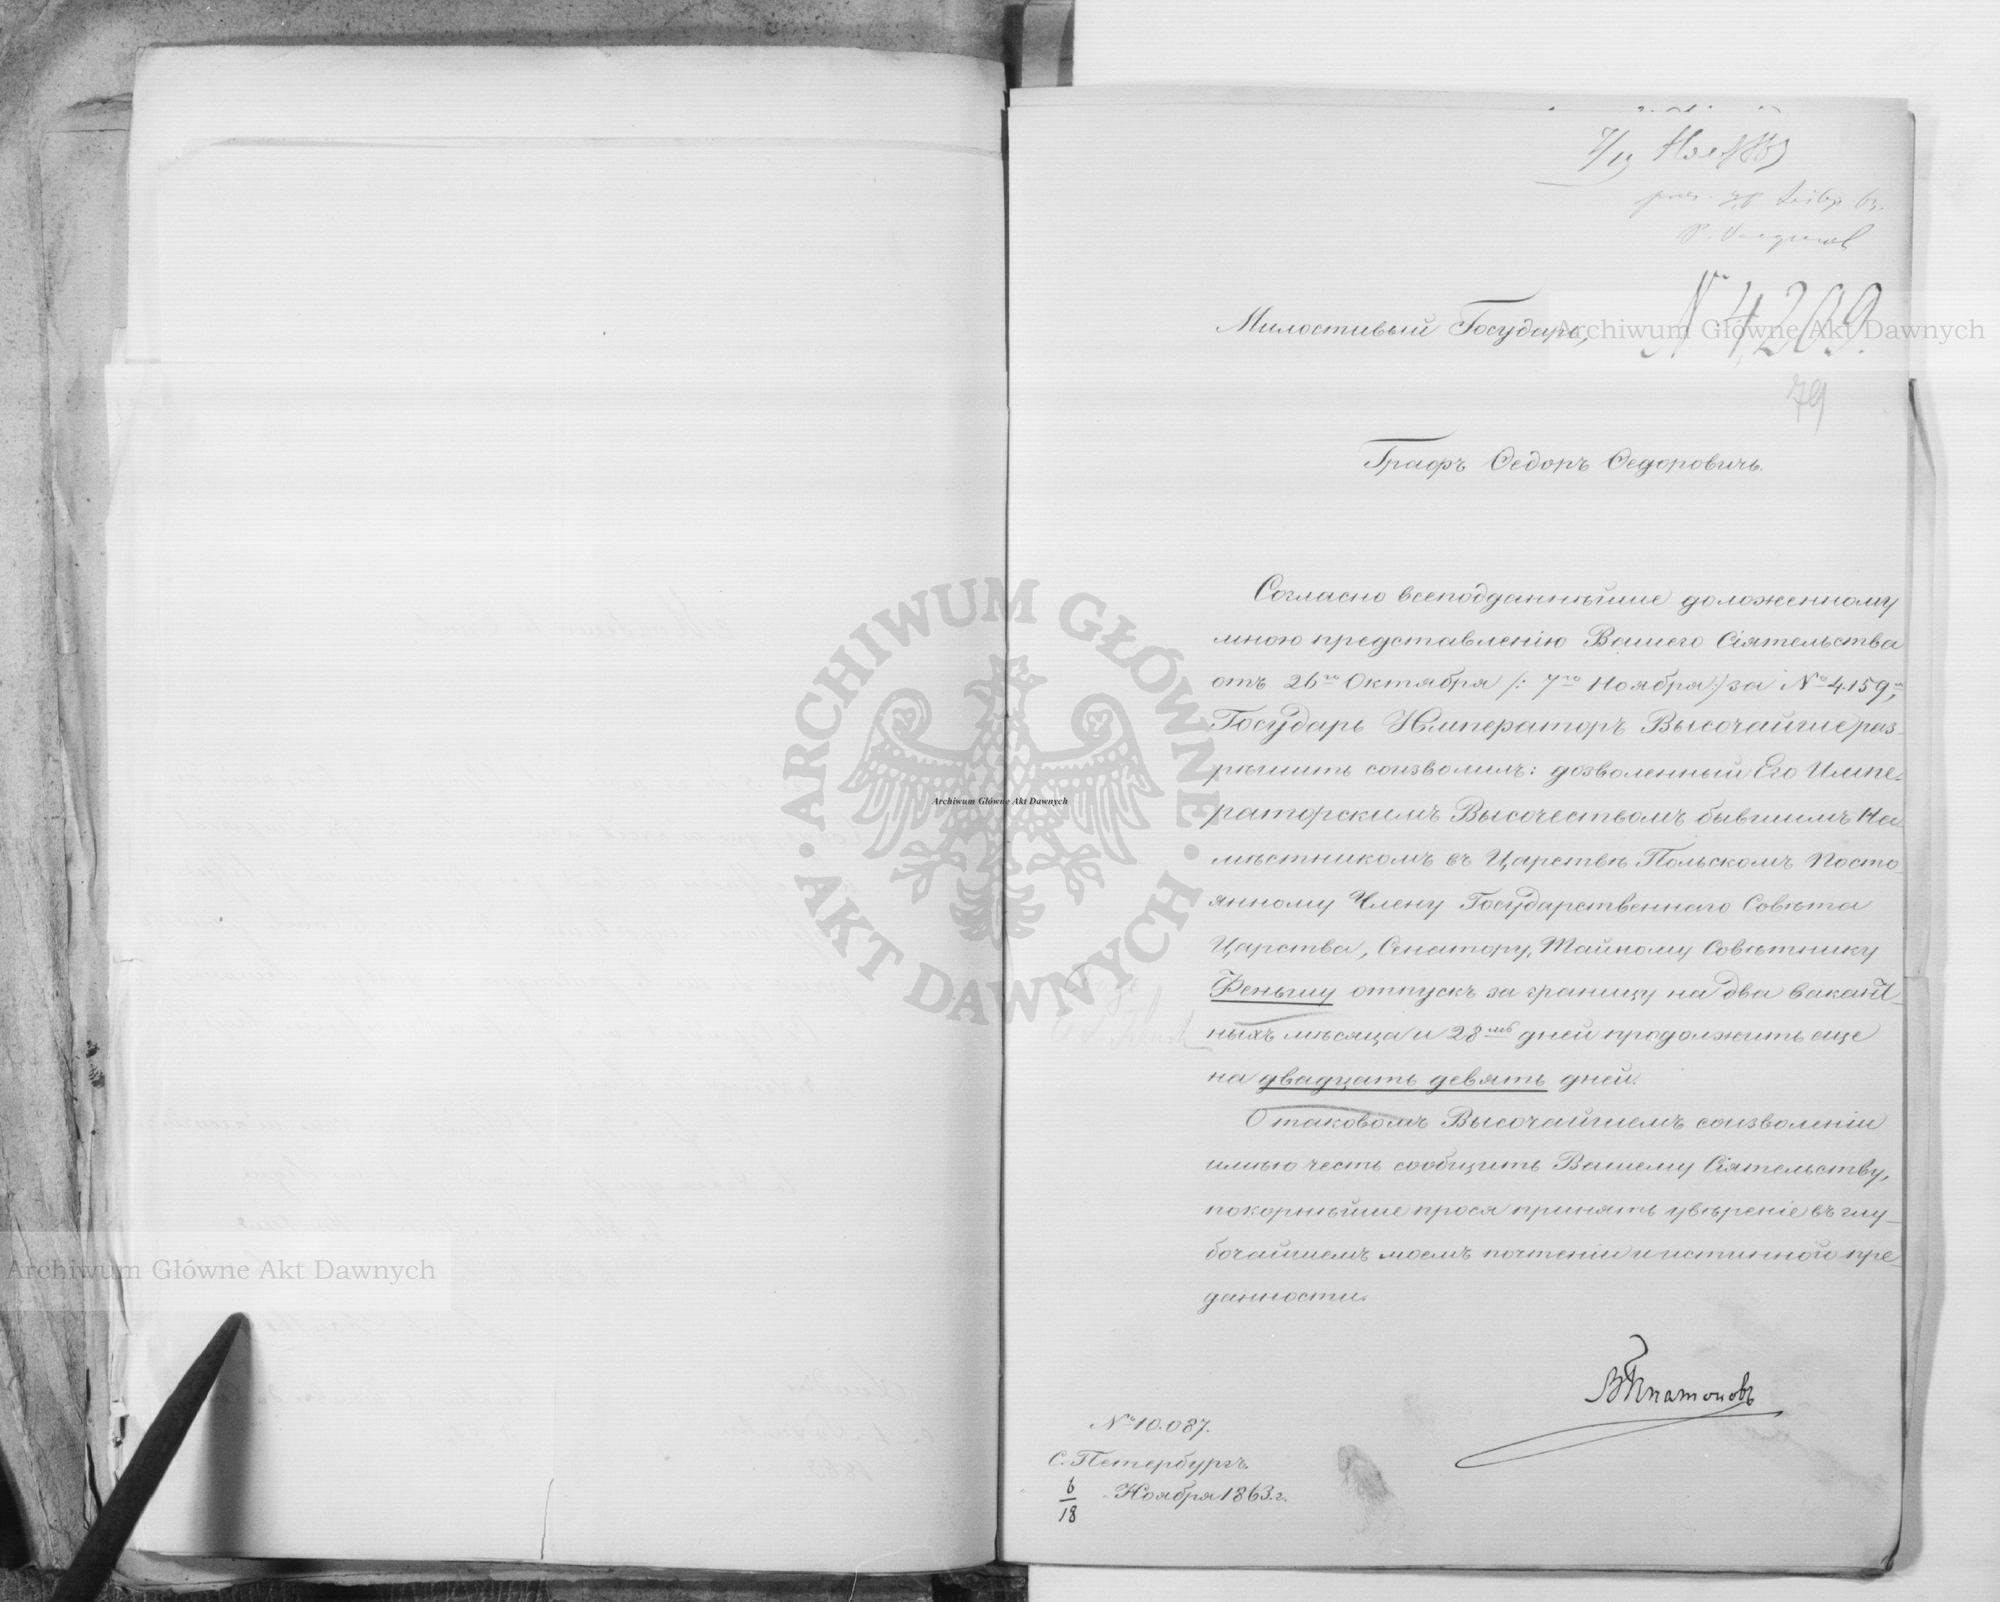 № 4,209.
79
Милостивый Государь,
Графъ Ѳедоръ Ѳедоровичъ.
Согласно всеподданнѣйше доложенному
мною представленію Вашего Сіятельства
отъ 26го Октября /: 7го Ноября :/ за № 4.159м,
Государь Императоръ Высочайше раз-
рѣшить соизволилъ: дозволенный Его Импе-
раторскимъ Высочествомъ бывшимъ На-
мѣстникомъ въ Царствѣ Польскомъ Посто-
янному Члену Государственнаго Совѣта
Царства, Сенатору, Тайному Совѣтнику
Феньшу отпускъ за границу на два вакант-
ныхъ мѣсяца и 28мь дней продолжить еще
на двадцать девять дней.
О таковомъ Высочайшемъ соизволеніи
имѣю честь сообщить Вашему Сіятельству,
покорнѣйше прося принять увѣреніе въ глу-
бочайшемъ моемъ почтеніи и истинной пре-
данности.
ВПлатоновъ
№ 10.087.
С. Петербургъ.
6/18 Ноября 1863 г.
Archiwum Główne Akt Dawnych
Archiwum Główne Akt Dawnych
Archiwum Główne Akt Dawnych
ARCHIWUM GŁÓWNE AKT DAWNYCH